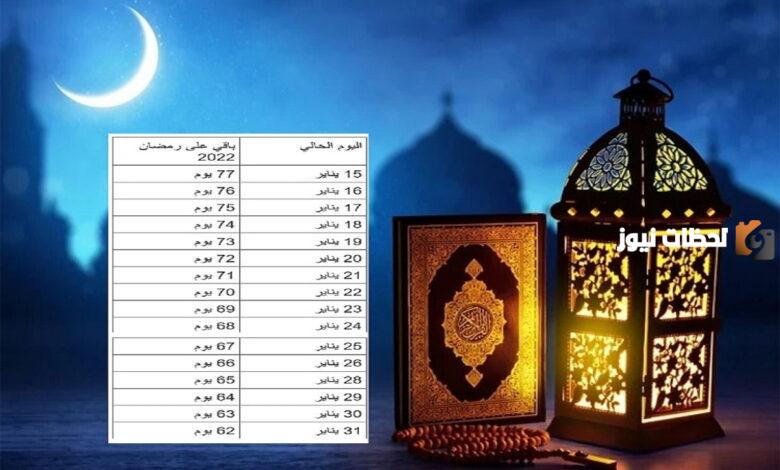 اليوم الحالي باقي على رمضان
2022
15 يناير 77 يوم
16 يناير 76 يوم
17 يناير 75 يوم
18 يناير 74 يوم
19 يناير 73 يوم
20 يناير 72 يوم
21 يناير 71 يوم
22 يناير 70 يوم
23 يناير 69 يوم
24 يناير 68 يوم
25 يناير 67 يوم
26 يناير 66 يوم
28 يناير 65 يوم
29 يناير 64 يوم
30 يناير 63 يوم
31 يناير 62 يوم
لحظات نيوز
القرآن الكريم